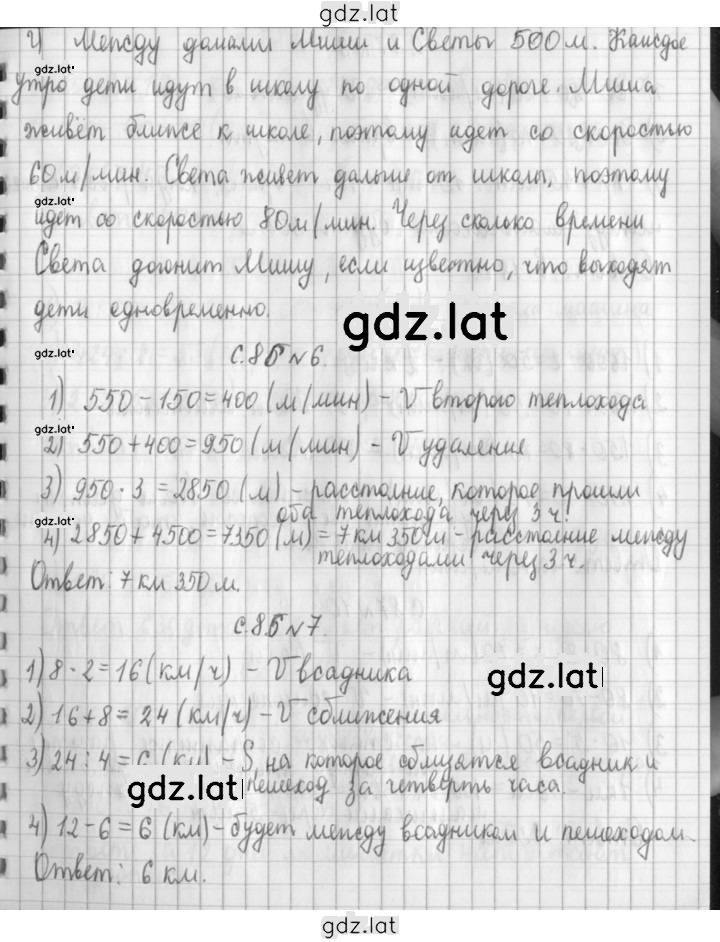 gdz.lat
2) Между домами Миши и Светы 500 м. Каждое
gdz.lat
утро дети идут в школу по одной дороге. Миша
живёт ближе к школе, поэтому идет со скоростью
60 м/мин. Света живет дальше от школы, поэтому
gdz.lat
идет со скоростью 80 м/мин. Через сколько времени
Света догонит Мишу, если известно, что выходят
дети одновременно.
gdz.lat
gdz.lat
с.85 №6.
1) 550 - 150 = 400 (м/мин) - V второго теплохода
gdz.lat
2) 550 + 400 = 950 (м/мин) - V удаление
3) 950 · 3 = 2850 (м) - расстояние, которое прошли
оба теплохода через 3 ч.
gdz.lat
4) 2850 + 4500 = 7350 (м) = 7 км 350 м - расстояние между
теплоходами через 3 ч.
Ответ: 7 км 350 м.
с.85 №7.
1) 8 · 2 = 16 (км/ч) - V всадника
gdz.lat
2) 16 + 8 = 24 (км/ч) - V сближения
3) 24 : 4 = 6 (км) - S, на которое сблизятся всадник и
gdz.lat пешеход за четверть часа.
4) 12 - 6 = 6 (км) - будет между всадником и пешеходом.
Ответ: 6 км.
gdz.lat